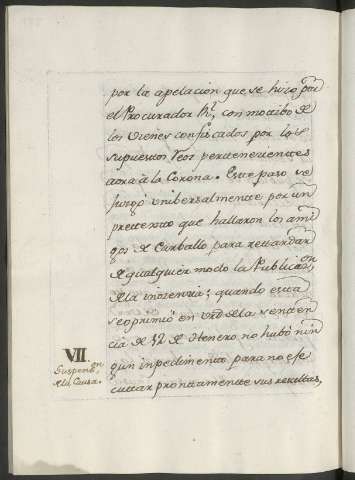 por la apelacion que se hizo por
el Procurador Rl, con motibo de
los vienes confiscados por los
supuestos reos pertenecientes
aora à la Corona. Este paso se
juzgó unibersalmente por un
pretexto que hallaron los ami
gos de Carballo para retardar
de qualquier modo la Publicaon,
dela inozencia; quando esta
se oprimió en vrd dela senten
cia de 12 de Henero no hubo nin
gun impedimento para no exe
cuttar prontamente sus resultas,
VII.
Suspenson
dela Causa.